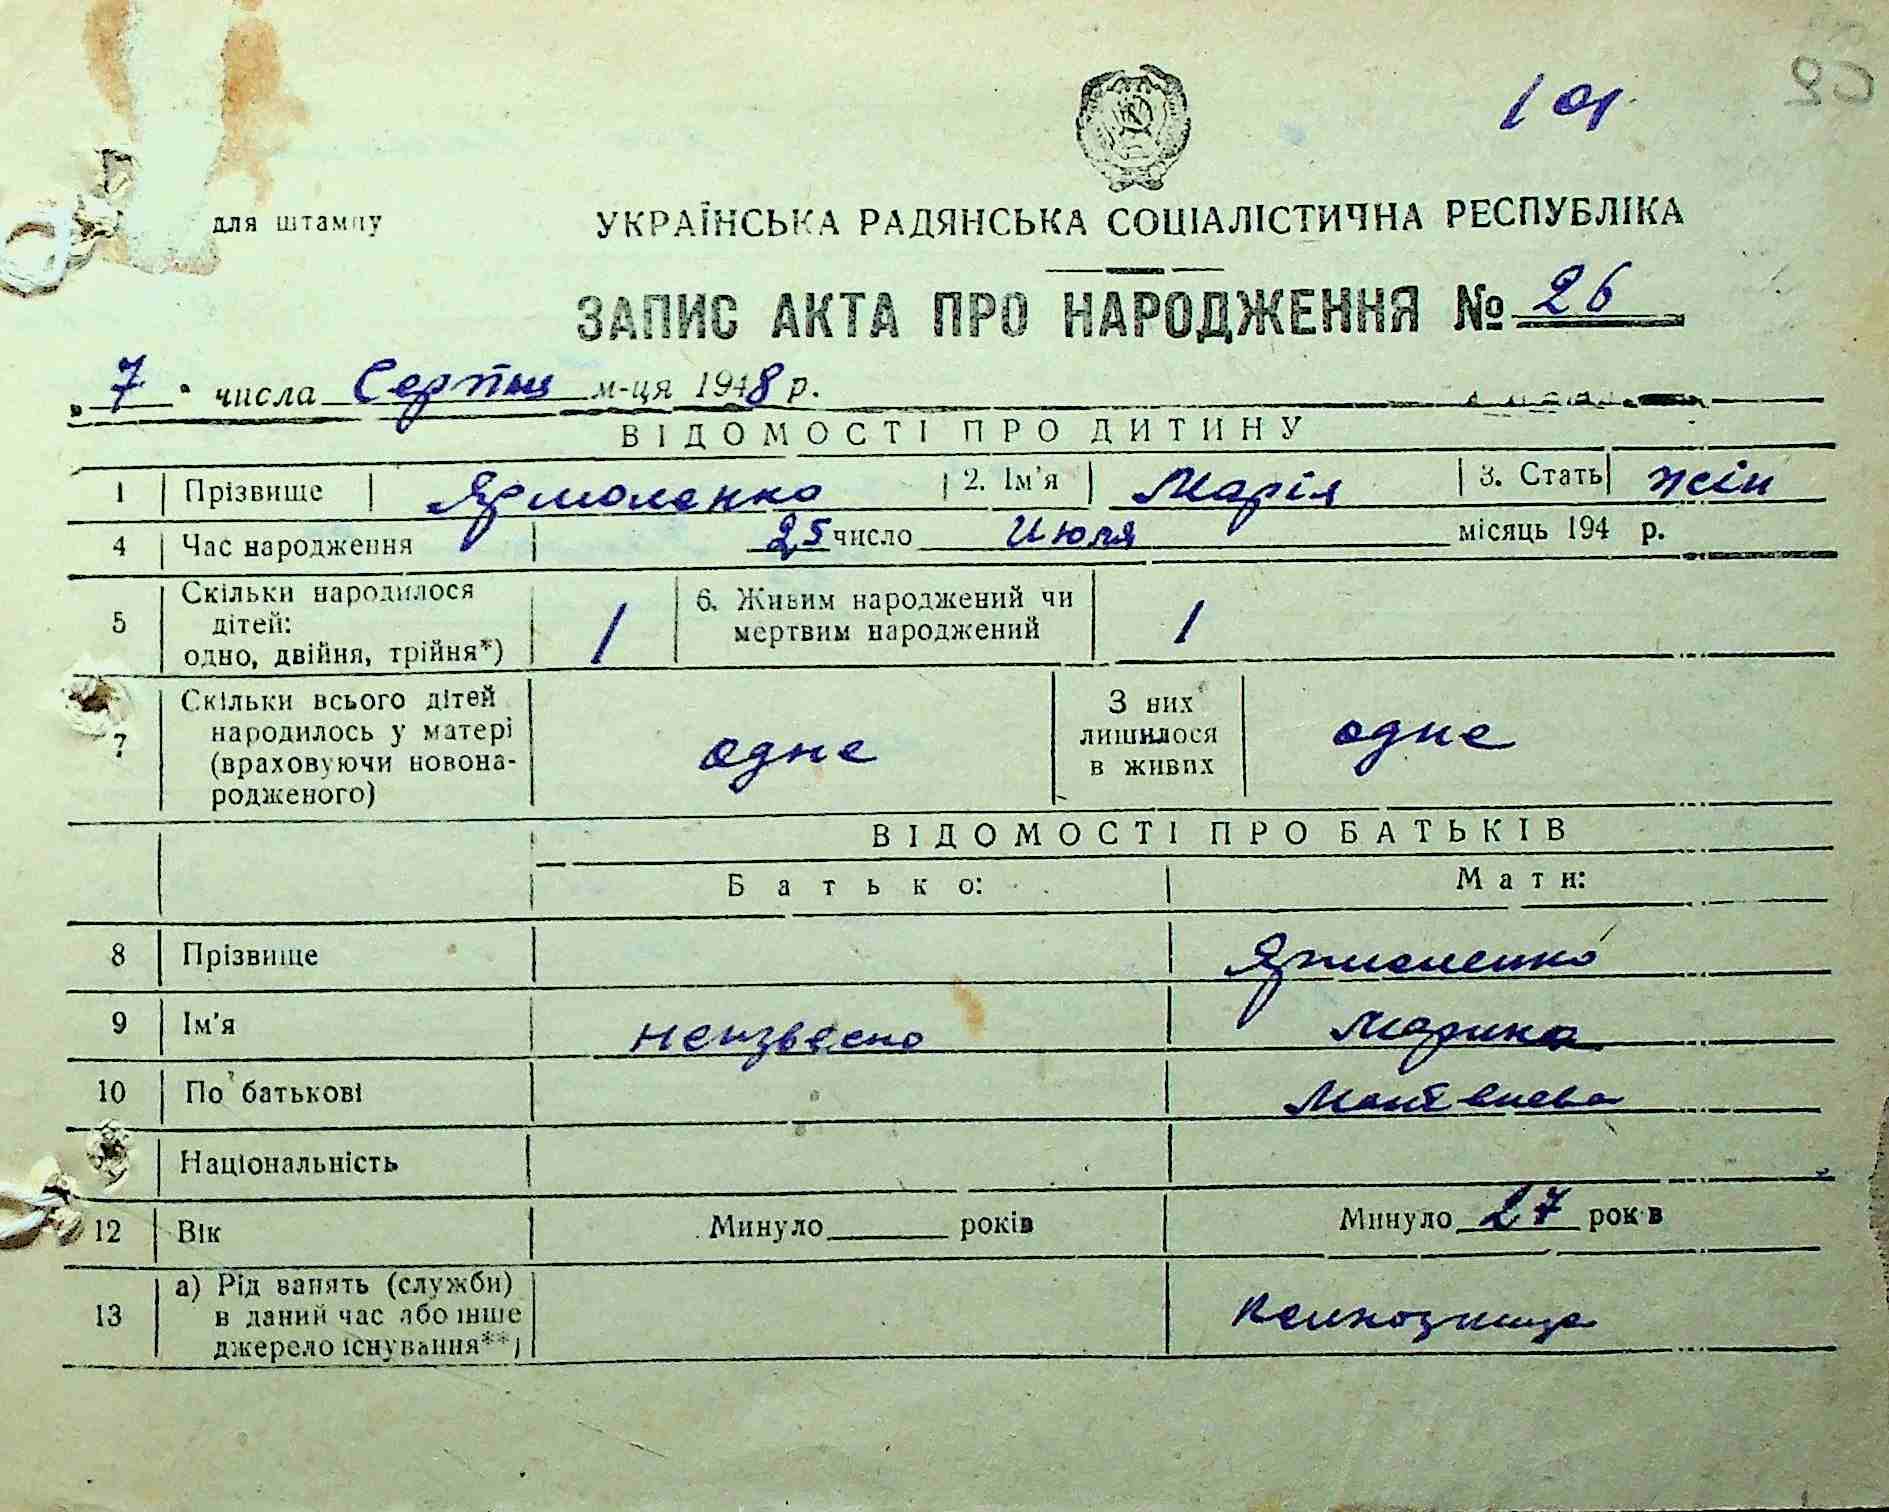 101
25
для штампу
УКРАЇНСЬКА РАДЯНСЬКА СОЦІАЛІСТИЧНА РЕСПУБЛІКА
ЗАПИС АКТА ПРО НАРОДЖЕННЯ № 26
„ 7 " числа Серпня м-ця 1948 р.
ВІДОМОСТІ ПРО ДИТИНУ
1 Прізвище Ярмоленко 2. Ім'я Марія 3. Стать жін
4 Час народження 25 число Июля місяць 194 р.
5 Скільки народилося дітей: одно, двійня, трійня*) 1 6. Живим народжений чи мертвим народжений 1
7 Скільки всього дітей народилось у матері (враховуючи новонародженого) одне З них лишилося в живих одне
ВІДОМОСТІ ПРО БАТЬКІВ
Батько: Мати:
8 Прізвище Ярмоленко
9 Ім'я неизвесно Марина
10 По батькові
Національність
12 Вік Минуло років Минуло 27 років
13 а) Рід занять (служби) в даний час або інше джерело існування**) колхозница